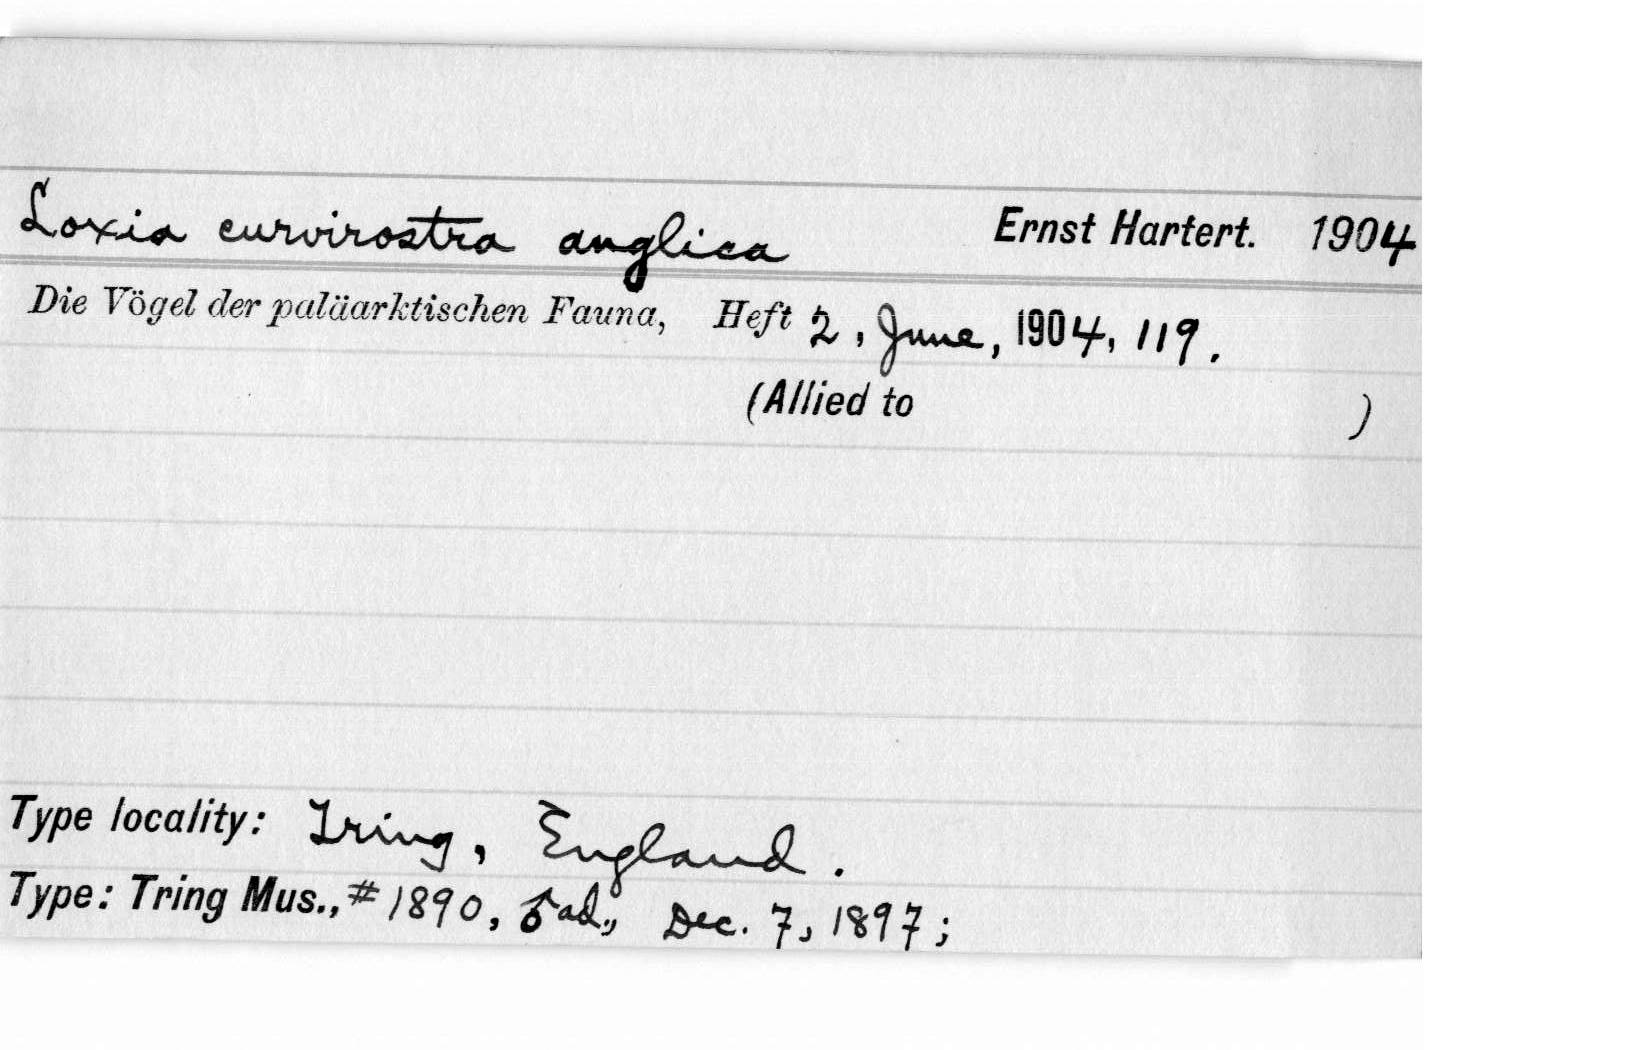 Loxia curvirostra anglica Ernst Hartert. 1904
Die Vögel der paläarktischen Fauna, Heft 2, June, 1904, 119.
(Allied to )
Type locality: Tring, England.
Type: Tring Mus., # 1890, ♂ ad., Dec. 7, 1897;